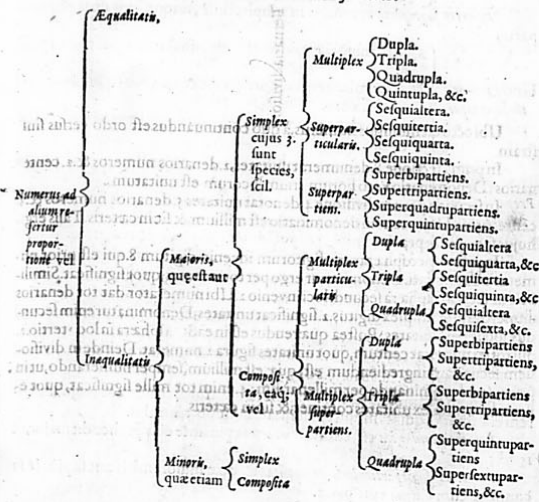 Æqualitatis,
Numerus ad
alium re-
fertur
propor-
tione vel
Inæqualitatis
Majoris,
quæ est aut
Simplex
cujus 3.
sunt
species,
scil.
Multiplex
Dupla.
Tripla.
Quadrupla.
Quintupla, &c.
Superpar-
ticularis.
Sesquialtera.
Sesquitertia.
Sesquiquarta.
Sesquiquinta.
Superpar-
tiens.
Superbipartiens.
Supertripartiens.
Superquadrupartiens.
Superquintupartiens.
Composi-
ta, eaq;
vel
Multiplex
particu-
laris
Dupla
Sesquialtera
Sesquiquarta, &c
Tripla
Sesquitertia
Sesquiquinta, &c.
Quadrupla
Sesquialtera
Sesquisexta, &c.
Multiplex
super
partiens.
Dupla
Superbipartiens
Supertripartiens,
&c.
Tripla
Superbipartiens
Supertripartiens,
&c.
Quadrupla
Superquintupar-
tiens
Supersextupar-
tiens, &c.
Minoris,
quæ etiam
Simplex
Composita